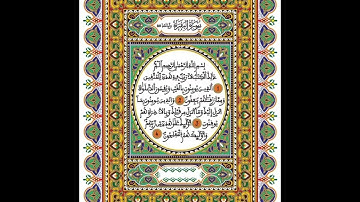 سورة البقرة
بسم الله الرحمن الرحيم الم
ذلك الكتب لا ريب فيه هدى للمتقين
1 الذين يومنون بالغيب ويقيمون الصلوة
ومما رزقنهم ينفقون 2 والذين يومنون بما
انزل اليك وما انزل من قبلك وبالاخرة هم
يوقنون 3 اولئك على هدى من ربهم
واولئك هم المفلحون 4